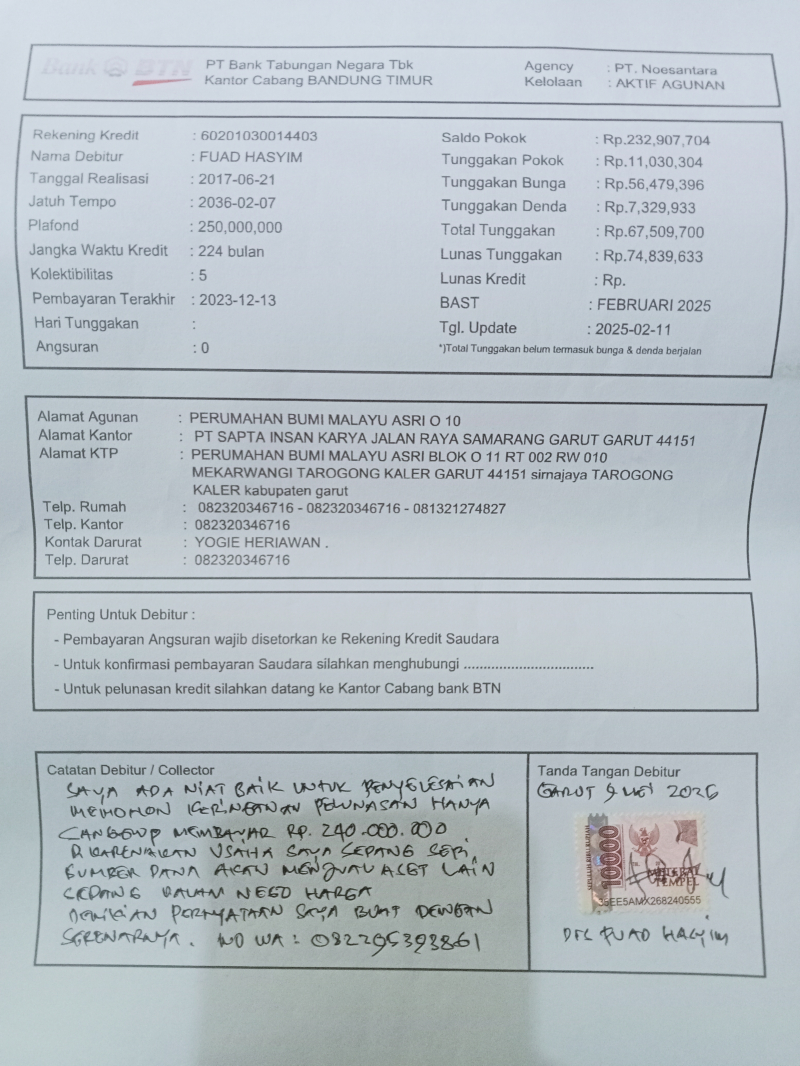 Bank BTN
PT Bank Tabungan Negara Tbk
Kantor Cabang BANDUNG TIMUR
Agency : PT. Noesantara
Kelolaan : AKTIF AGUNAN
Rekening Kredit : 60201030014403
Nama Debitur : FUAD HASYIM
Tanggal Realisasi : 2017-06-21
Jatuh Tempo : 2036-02-07
Plafond : 250,000,000
Jangka Waktu Kredit : 224 bulan
Kolektibilitas : 5
Pembayaran Terakhir : 2023-12-13
Hari Tunggakan :
Angsuran : 0
Saldo Pokok : Rp.232,907,704
Tunggakan Pokok : Rp.11,030,304
Tunggakan Bunga : Rp.56,479,396
Tunggakan Denda : Rp.7,329,933
Total Tunggakan : Rp.67,509,700
Lunas Tunggakan : Rp.74,839,633
Lunas Kredit : Rp.
BAST : FEBRUARI 2025
Tgl. Update : 2025-02-11
*)Total Tunggakan belum termasuk bunga & denda berjalan
Alamat Agunan : PERUMAHAN BUMI MALAYU ASRI O 10
Alamat Kantor : PT SAPTA INSAN KARYA JALAN RAYA SAMARANG GARUT GARUT 44151
Alamat KTP : PERUMAHAN BUMI MALAYU ASRI BLOK O 11 RT 002 RW 010
MEKARWANGI TAROGONG KALER GARUT 44151 sirnajaya TAROGONG
KALER kabupaten garut
Telp. Rumah : 082320346716 - 082320346716 - 081321274827
Telp. Kantor : 082320346716
Kontak Darurat : YOGIE HERIAWAN .
Telp. Darurat : 082320346716
Penting Untuk Debitur :
- Pembayaran Angsuran wajib disetorkan ke Rekening Kredit Saudara
- Untuk konfirmasi pembayaran Saudara silahkan menghubungi .................................
- Untuk pelunasan kredit silahkan datang ke Kantor Cabang bank BTN
Catatan Debitur / Collector
SAYA ADA NIAT BAIK UNTUK PENYELESAIAN
MEMOHON KERINGANAN PELUNASAN HANYA
SANGGUP MEMBAYAR RP. 240.000.000
DIKARENAKAN USAHA SAYA SEDANG SEPI,
SUMBER DANA AKAN MENJUAL ASET LAIN
SEDANG DALAM NEGO HARGA
DEMIKIAN PERNYATAAN SAYA BUAT DENGAN
SEBENARNYA. NO WA : 082295393861
Tanda Tangan Debitur
GARUT 9 MEI 2026
10000
METERAI
TEMPEL
35EE5AMX268240555
FUAD HASYIM